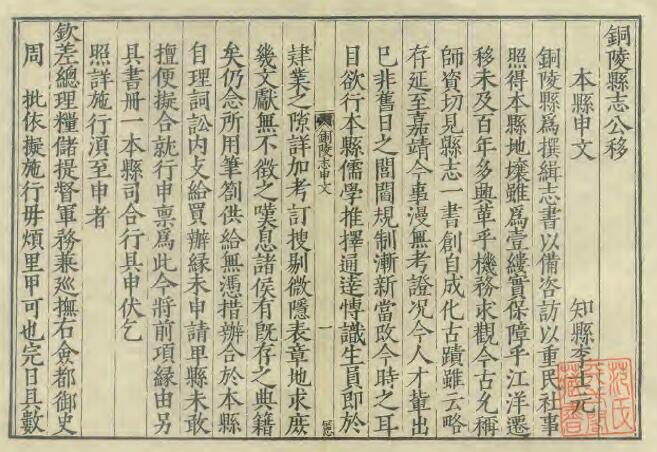 銅陵縣志公移
本縣申文
知縣李士元
銅陵縣爲撰緝志書以備咨訪以重民社事
照得本縣地壤雖爲壹縷實保障乎江洋遷
移未及百年多興革乎機務求觀今古允稱
師資切見縣志一書創自成化古蹟雖云略
存延至嘉靖今事漫無考證况今人才軰出
巳非舊日之閭閻規制漸新當改今時之耳
目欲行本縣儒學推擇通逹愽識生員即於
銅陵志申文
一
肄業之隙詳加考訂搜剔微隱表章地求庶
幾文獻無不徵之嘆息諸侯有旣存之典籍
矣仍念所用筆劄供給無憑措辦合於本縣
自理詞訟内攴給買辦緣未申請卑縣未敢
擅便擬合就行申禀爲此今將前項縁由另
具書冊一本縣司合行具申伏乞
照詳施行湏至申者
欽差總理糧儲提督軍務兼廵撫右僉都御史
周 批依擬施行毋煩里甲可也完日具數
范氏天一閣藏書